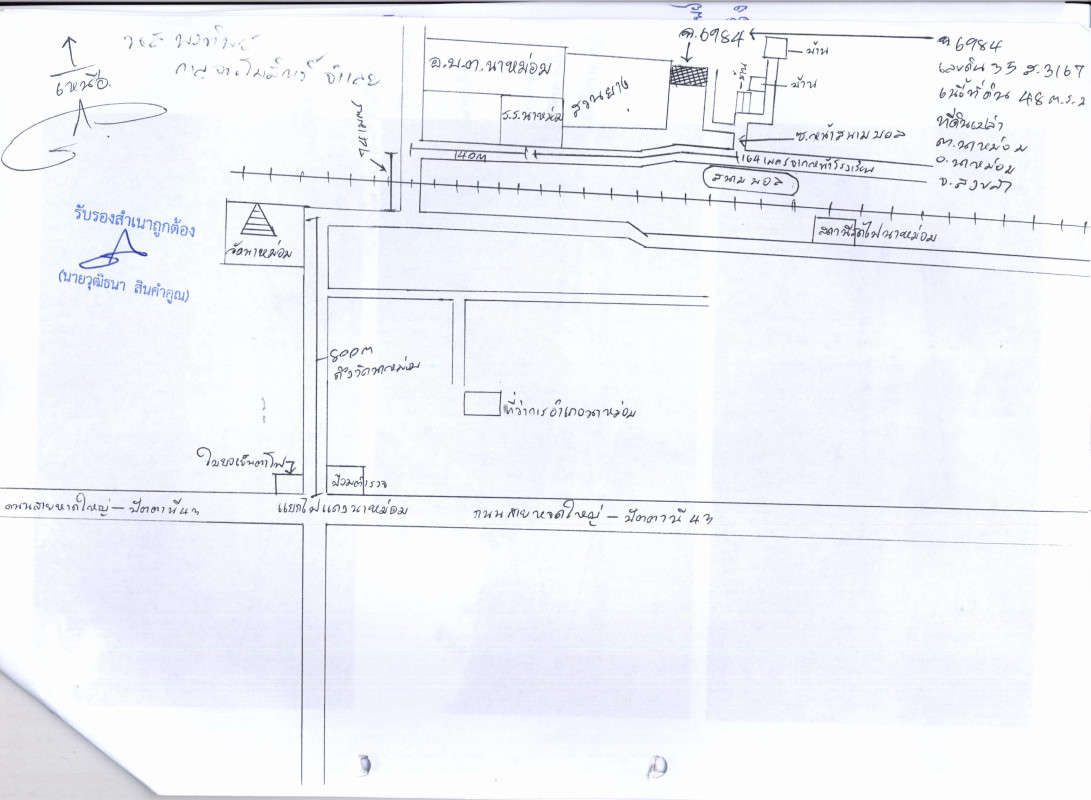 เหนือ
ฉ.6984
ฉ 6984
เลขดิน 35 ส.3167
เนื้อที่ดิน 48 ต.ร.ว
ที่ดินเปล่า
ต.นาหม่อม
อ.นาหม่อม
จ.สงขลา
บ้าน
บ้าน
บ้าน
อ.บ.ต.นาหม่อม
ร.ร.นาหม่อม
สวนยาง
ซ.หน้าสนามบอล
140m
164 เมตรจากหน้าโรงเรียน
สนามบอล
สถานีรถไฟนาหม่อม
วัดนาหม่อม
รับรองสำเนาถูกต้อง
(นายวุฒิธนา สินคำคูณ)
800m
ถึงวัดนาหม่อม
ที่ว่าการอำเภอนาหม่อม
ป้อมตำรวจ
ถนนสายหาดใหญ่ – ปัตตานี 43
แยกไฟแดงนาหม่อม
ถนนสายหาดใหญ่ – ปัตตานี 43